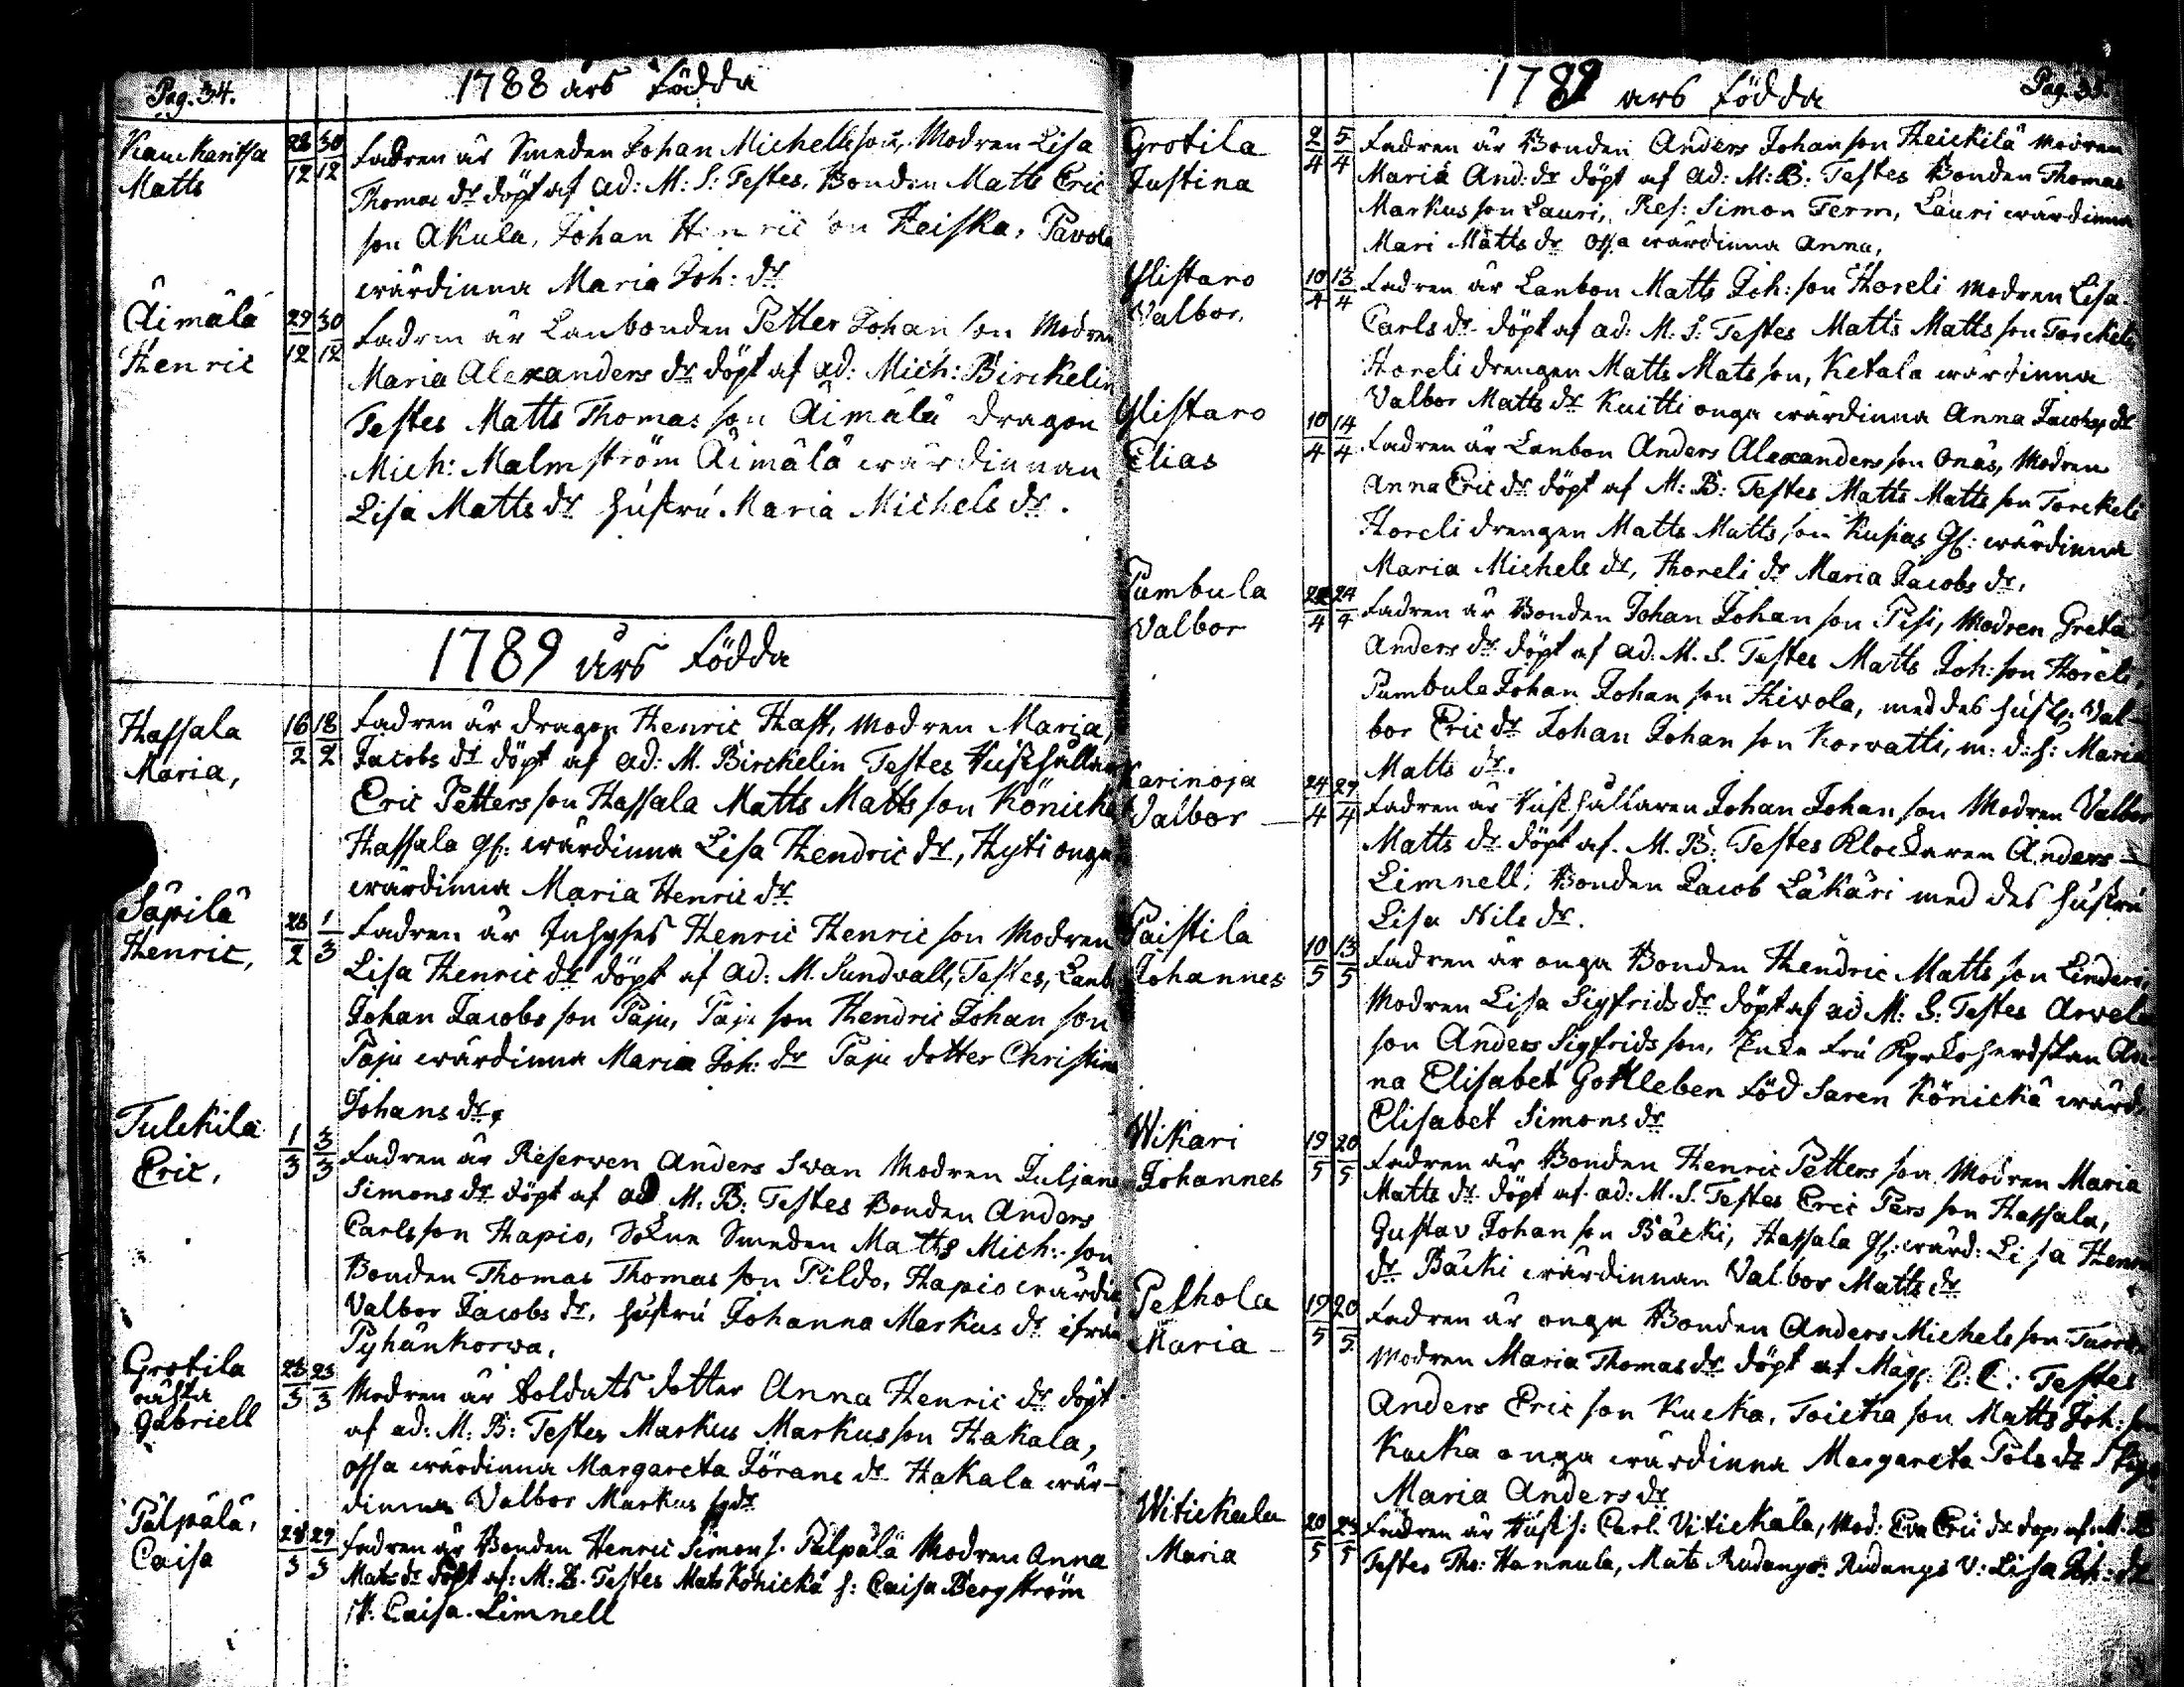 Pag. 34.
1788 års Födda
Kauckaritsa
Matts
28/12 30/12
Fadren är Smeden Johan Michellsson, Modren Lisa
Thomas dr döpt af ad: M: S: Testes, Bonden Matts Eric
son Akula, Johan Henric son Keiska, Pavola
wärdinna Maria Joh: dr
Äimälä
Henric
29/12 30/12
Fadren är Lanbonden Petter Johan son Modren
Maria Alexanders dr döpt af ad: Mich: Birckelin
Testes Matts Thomas son Äimälä dragon
Mich: Malmström Äimälä wärdinnan
Lisa Matts dr hustru Maria Michels dr.
1789 års Födda
Hassala
Maria,
16/2 18/2
Fadren är dragon Henric Hast, Modren Maria,
Jacobs dr döpt af ad: M. Birckelin Testes
Eric Petters son Hassala Matts Matts son Könicke
Hassala gl: wärdinna Lisa Hendric dr, Hyti onga
wärdinna Maria Henric dr
Säpilä
Henric,
28/2 1/3
Fadren är Inhyses Henric Henric son Modren
Lisa Henric dr döpt af ad: M. Sundwall, Testes, Lanb
Johan Jacobs son Paju, Paju son Hendric Johan son
Paju wärdinna Maria Joh: dr Paju dotter Christina
Johans dr,
Tulckila
Eric,
1/3 3/3
Fadren är Reserven Anders Swan Modren Juljana
Simons dr döpt af ad M: B: Testes Bonden Anders
Carlsson Hapio, Sokne Smeden Matts Mich: son
Bonden Thomas Thomas son Pildo, Hapio wärdin
Valbor Jacobs dr, hustru Johanna Markus dr ifrån
Pyhänkorwa.
Grotila
oäkta
Gabriell
23/3 25/3
Modren är Soldats dotter Anna Henric dr döpt
af ad: M: B: Testes Markus Markusson Hakala,
Ossa wärdinna Margareta Jörans dr Hakala wär-
dinna Valbor Markus dr
Pälpälä,
Caisa
28/3 29/3
Fadren är Bonden Henric Simon s. Pälpälä Modren Anna
Mats dr döpt af: M: B. Testes Mats Könickä h: Caisa Bergström
Caisa Limnell
1789 års Födda
Grotila
Justina
2/4 5/4
Fadren är Bonden Anders Johanson Heickilä Modren
Maria And: dr döpt af ad: M: B: Testes Bonden Thomas
Markus son Lauri, Res: Simon Term, Lauri wärdinna
Mari Matts dr Ossa wärdinna Anna,
Ylistaro
Valbor,
10/4 13/4
Fadren är Lanbon Matts Joh: son Horeli Modren Lisa
Carls dr döpt af ad: M: S: Testes Matts Matts son Torckeli
Horeli drengen Matts Mats son, Ketala wärdinna
Valbor Matts dr Kuitti onga wärdinna Anna Jacobs dr
Ylistaro
Elias
10/4 14/4
Fadren är Lanbon Anders Alexanders son Onäs, Modren
Anna Eric dr döpt af M: B: Testes Matts Matts son Torckeli
Horeli drengen Matts Matts son Kupias gl: wärdinna
Maria Michels dr, Horeli dr Maria Jacobs dr.
Pumbula
Valbor
22/4 24/4
Fadren är Bonden Johan Johan son Pisi, Modren Greta
Anders dr döpt af ad: M. S. Testes Matts Joh: son Horeli,
Pumbula Johan Johan son Hivola, med des hust: Val-
bor Eric dr Johan Johan son Korvatti, m: d: h: Maria
Matts dr.
Karinoja
Valbor
24/4 27/4
Fadren är Johan Johan son Modren Valbor
Matts dr döpt af. M. B: Testes Klockaren Anders
Limnell, Bonden Jacob Läkäri med des hustru
Lisa Nils dr.
Paistila
Johannes
10/5 13/5
Fadren är onga Bonden Hendric Matts son Linderi,
Modren Lisa Sigfrids dr döpt af ad M: S: Testes Arvela
son Anders Sigfrids son, Enke Fru Kyrkoherdskan An-
na Elisabet Gottleben Föd Saren Könickä wärd.
Elisabet Simons dr
Wikari
Johannes
19/5 20/5
Fadren är Bonden Henric Petters son Modren Maria
Matts dr döpt af ad: M. S. Testes Eric Pers son Hassala,
Gustav Johan son Bäcki, Hassala gl: wärd: Lisa Henric
dr Bäcki wärdinnan Valbor Matts dr
Pelhola
Maria
19/5 20/5
Fadren är onga Bonden Anders Michels son
Modren Maria Thomas dr döpt af Mag: Testes
Anders Eric son Kucka, Toicka son Matts Joh: son
Kucka onga wärdinna Margareta Pols dr
Maria Anders dr
Witickala
Maria
20/5 25/5
Fadren är Carl Vitickala, Mod: Eva Eric dr döp: af M. B
Testes Tho: Hannula, Mats Rudangs: Rudangs V: Lisa